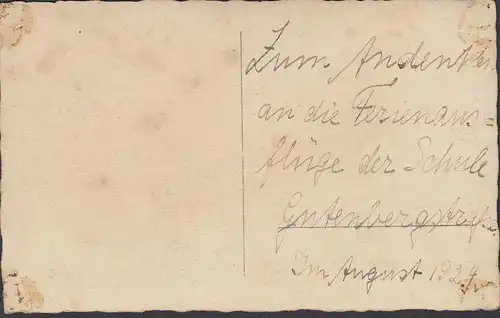 Zum Andenken
an die Ferienaus=
flüge der Schule
Gutenbergstraße.
Im August 1929.